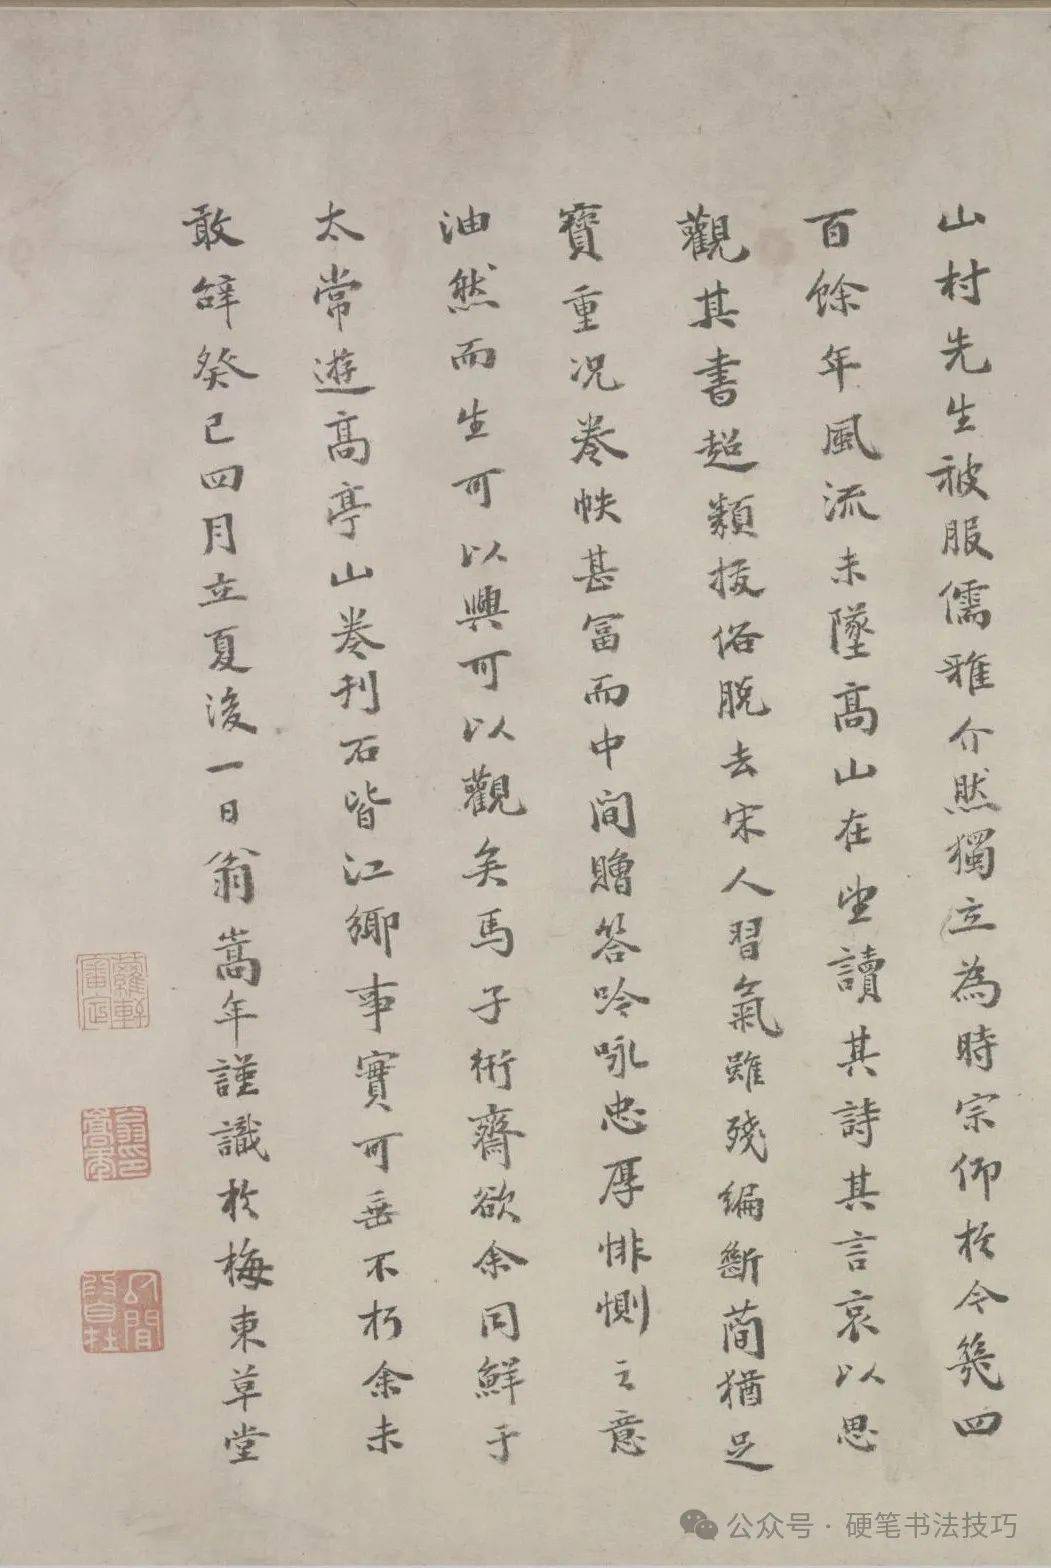 山村先生被服儒雅介然獨立為時宗仰於今幾四
百餘年風流未墜高山在望讀其詩其言哀以思
觀其書超類拔俗脫去宋人習氣雖殘編斷簡猶足
寶重況卷帙甚富而中間贈答吟咏忠厚悱惻之意
油然而生可以興可以觀矣馬子衎齋欲余同鮮于
太常遊高亭山卷刊石皆江鄉事實可垂不朽余未
敢辭癸巳四月立夏後一日翁嵩年謹識於梅東草堂
公众号·硬笔书法技巧